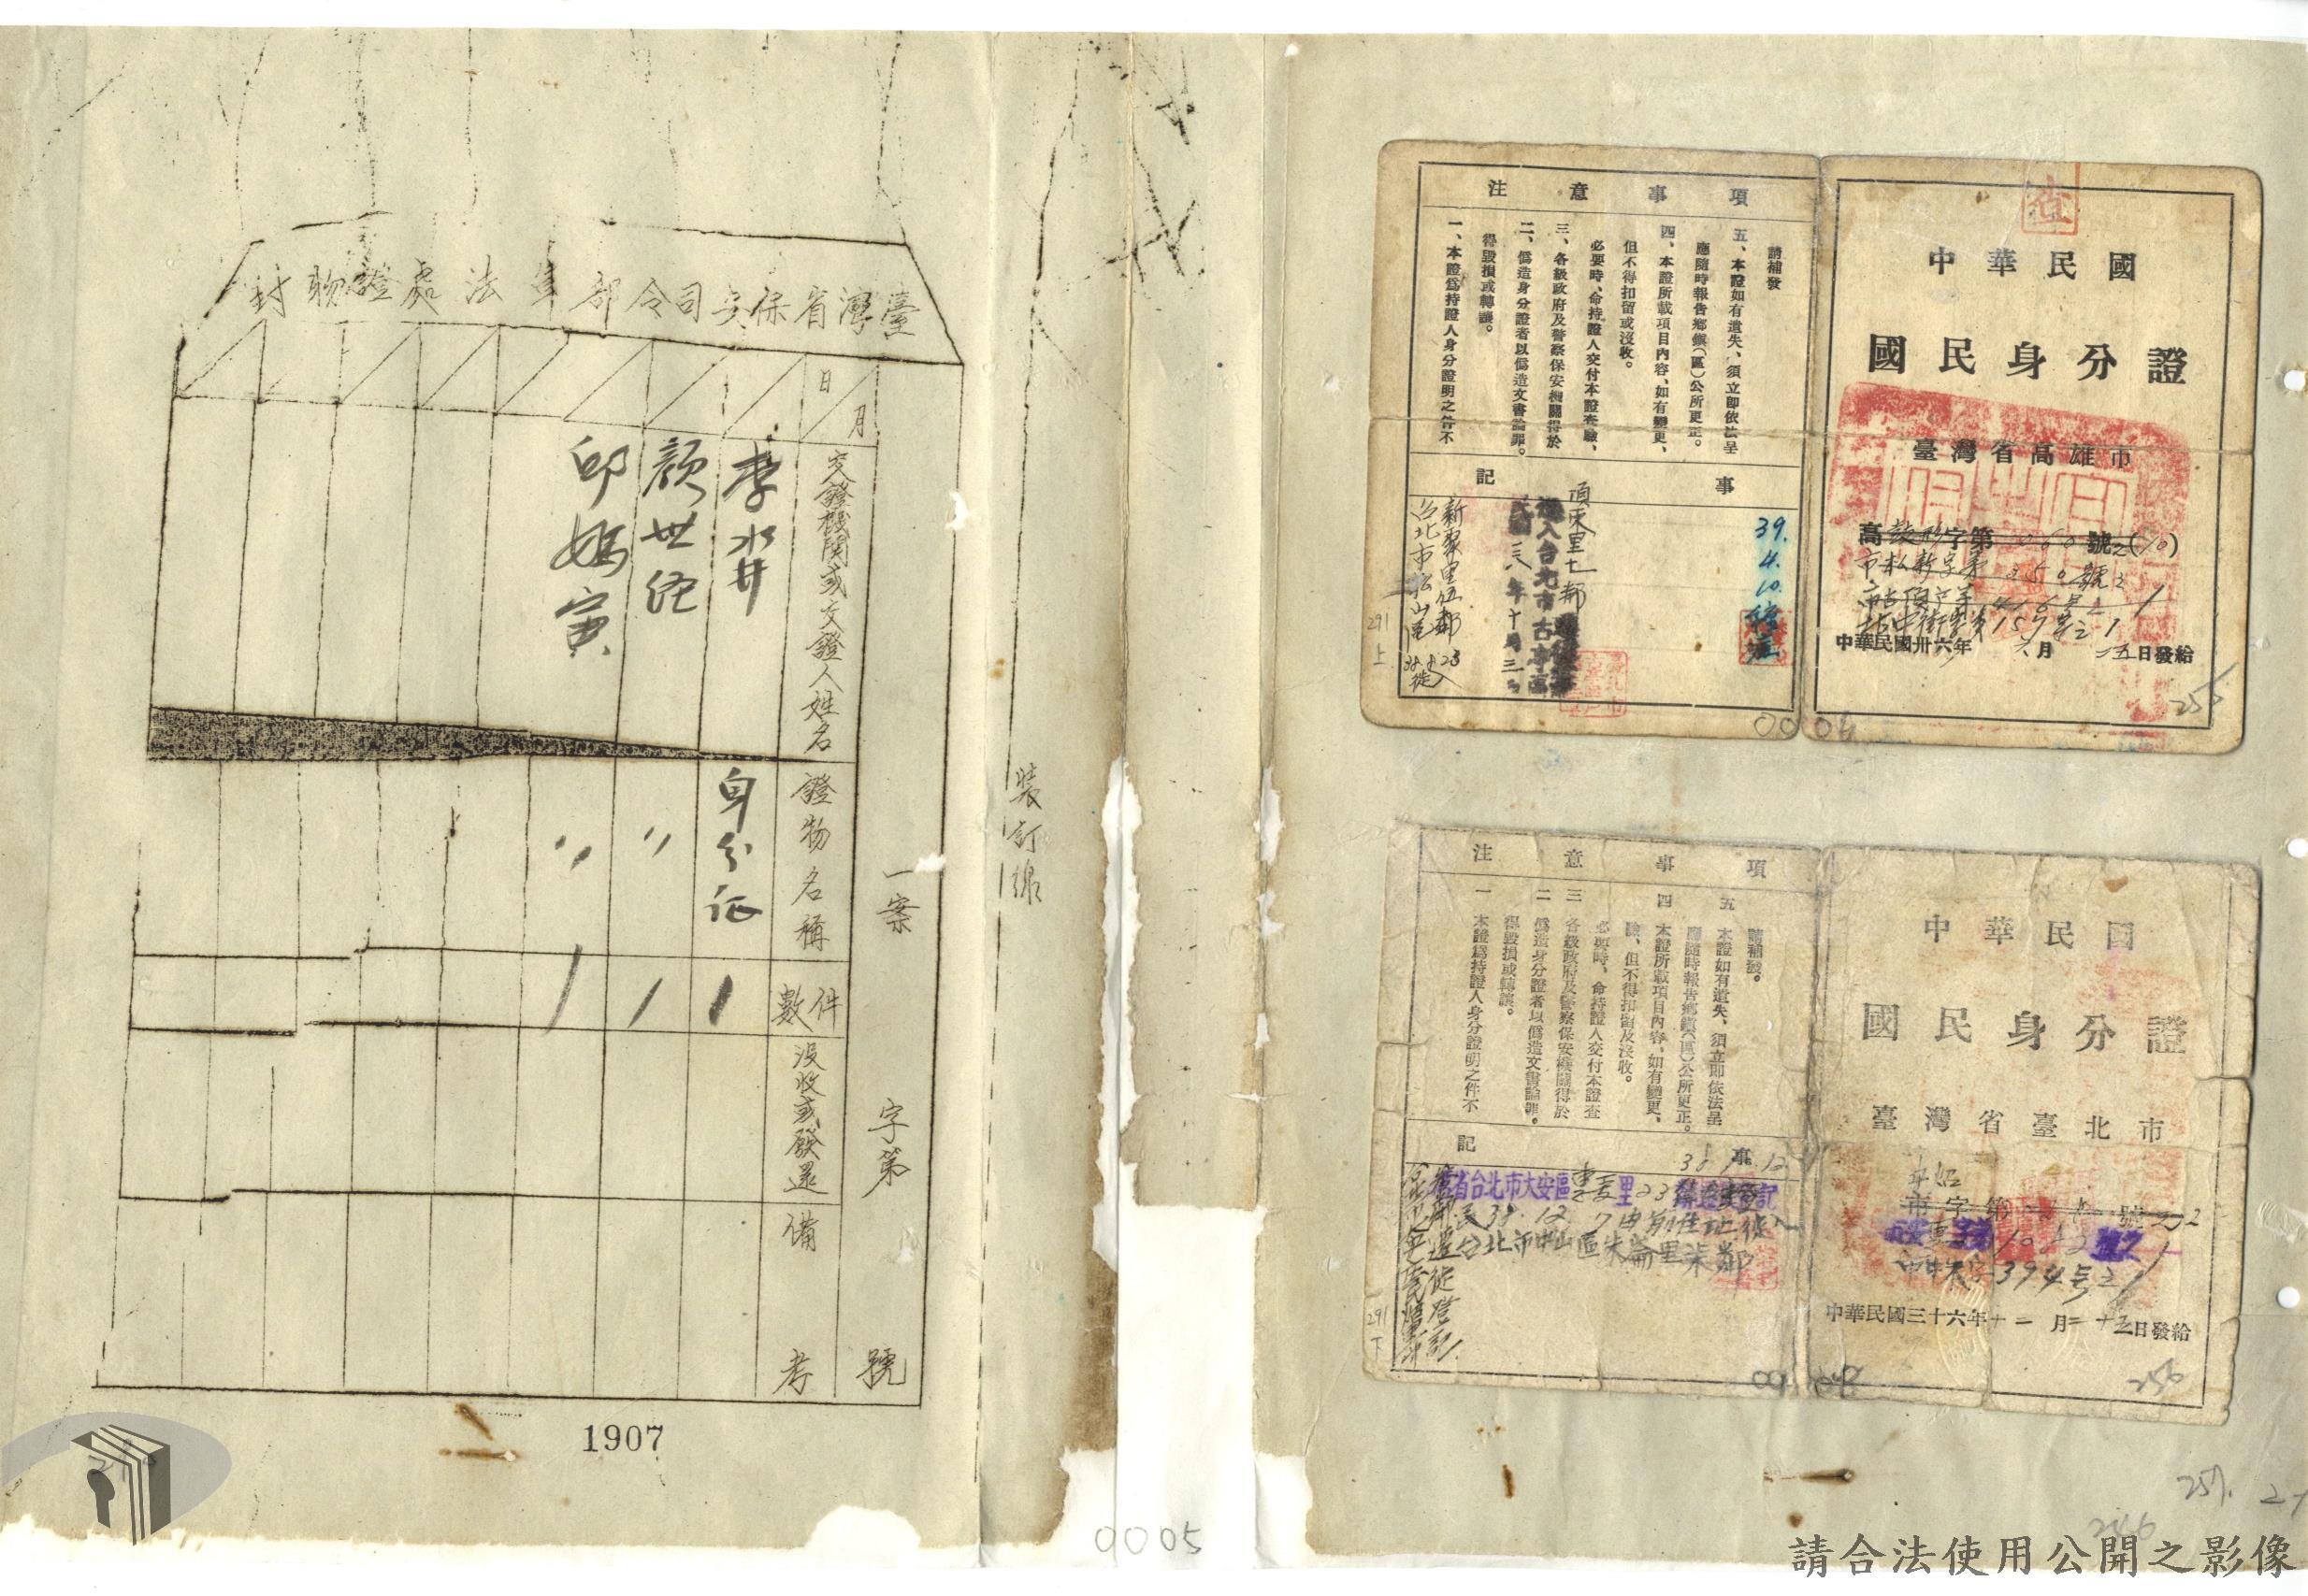 臺灣省保安司令部軍法處證物封
一案 字第 號
月 日
交證機關或交證人姓名
證物名稱
件數
沒收或發還
備考
李水井 身分证 1
顏世經 〃 1
邱媽寅 〃 1
1907
裝訂線
0005
中華民國
國民身分證
臺灣省高雄市
中華民國卅六年六月二五日發給
255
注意事項
一、本證爲持證人身分證明之件不
得毀損或轉讓。
二、僞造身分證者以僞造文書論罪。
三、各級政府及警察保安機關得於
必要時、命持證人交付本證查驗、
但不得扣留或沒收。
四、本證所載項目內容、如有變更、
應隨時報告鄉鎮(區)公所更正。
五、本證如有遺失、須立卽依法呈
請補發
記事
台北市松山區
新聚里伍鄰
遷入台北市古亭區
頂東里七鄰
39.4.10.
291
上
0006
中華民國
國民身分證
臺灣省臺北市
中華民國三十六年十一月二十三日發給
256
注意事項
一 本證爲持證人身分證明之件不
得毀損或轉讓。
二 僞造身分證者以僞造文書論罪。
三 各級政府及警察保安機關得於
必要時、命持證人交付本證查
驗、但不得扣留及沒收。
四 本證所載項目內容、如有變更、
應隨時報告鄉鎮(區)公所更正。
五 本證如有遺失、須立卽依法呈
請補發。
記事
省台北市大安區
民38.12.7由前住址徙入
台北市中山區朱崙里柒鄰
291
下
257.
246
請合法使用公開之影像